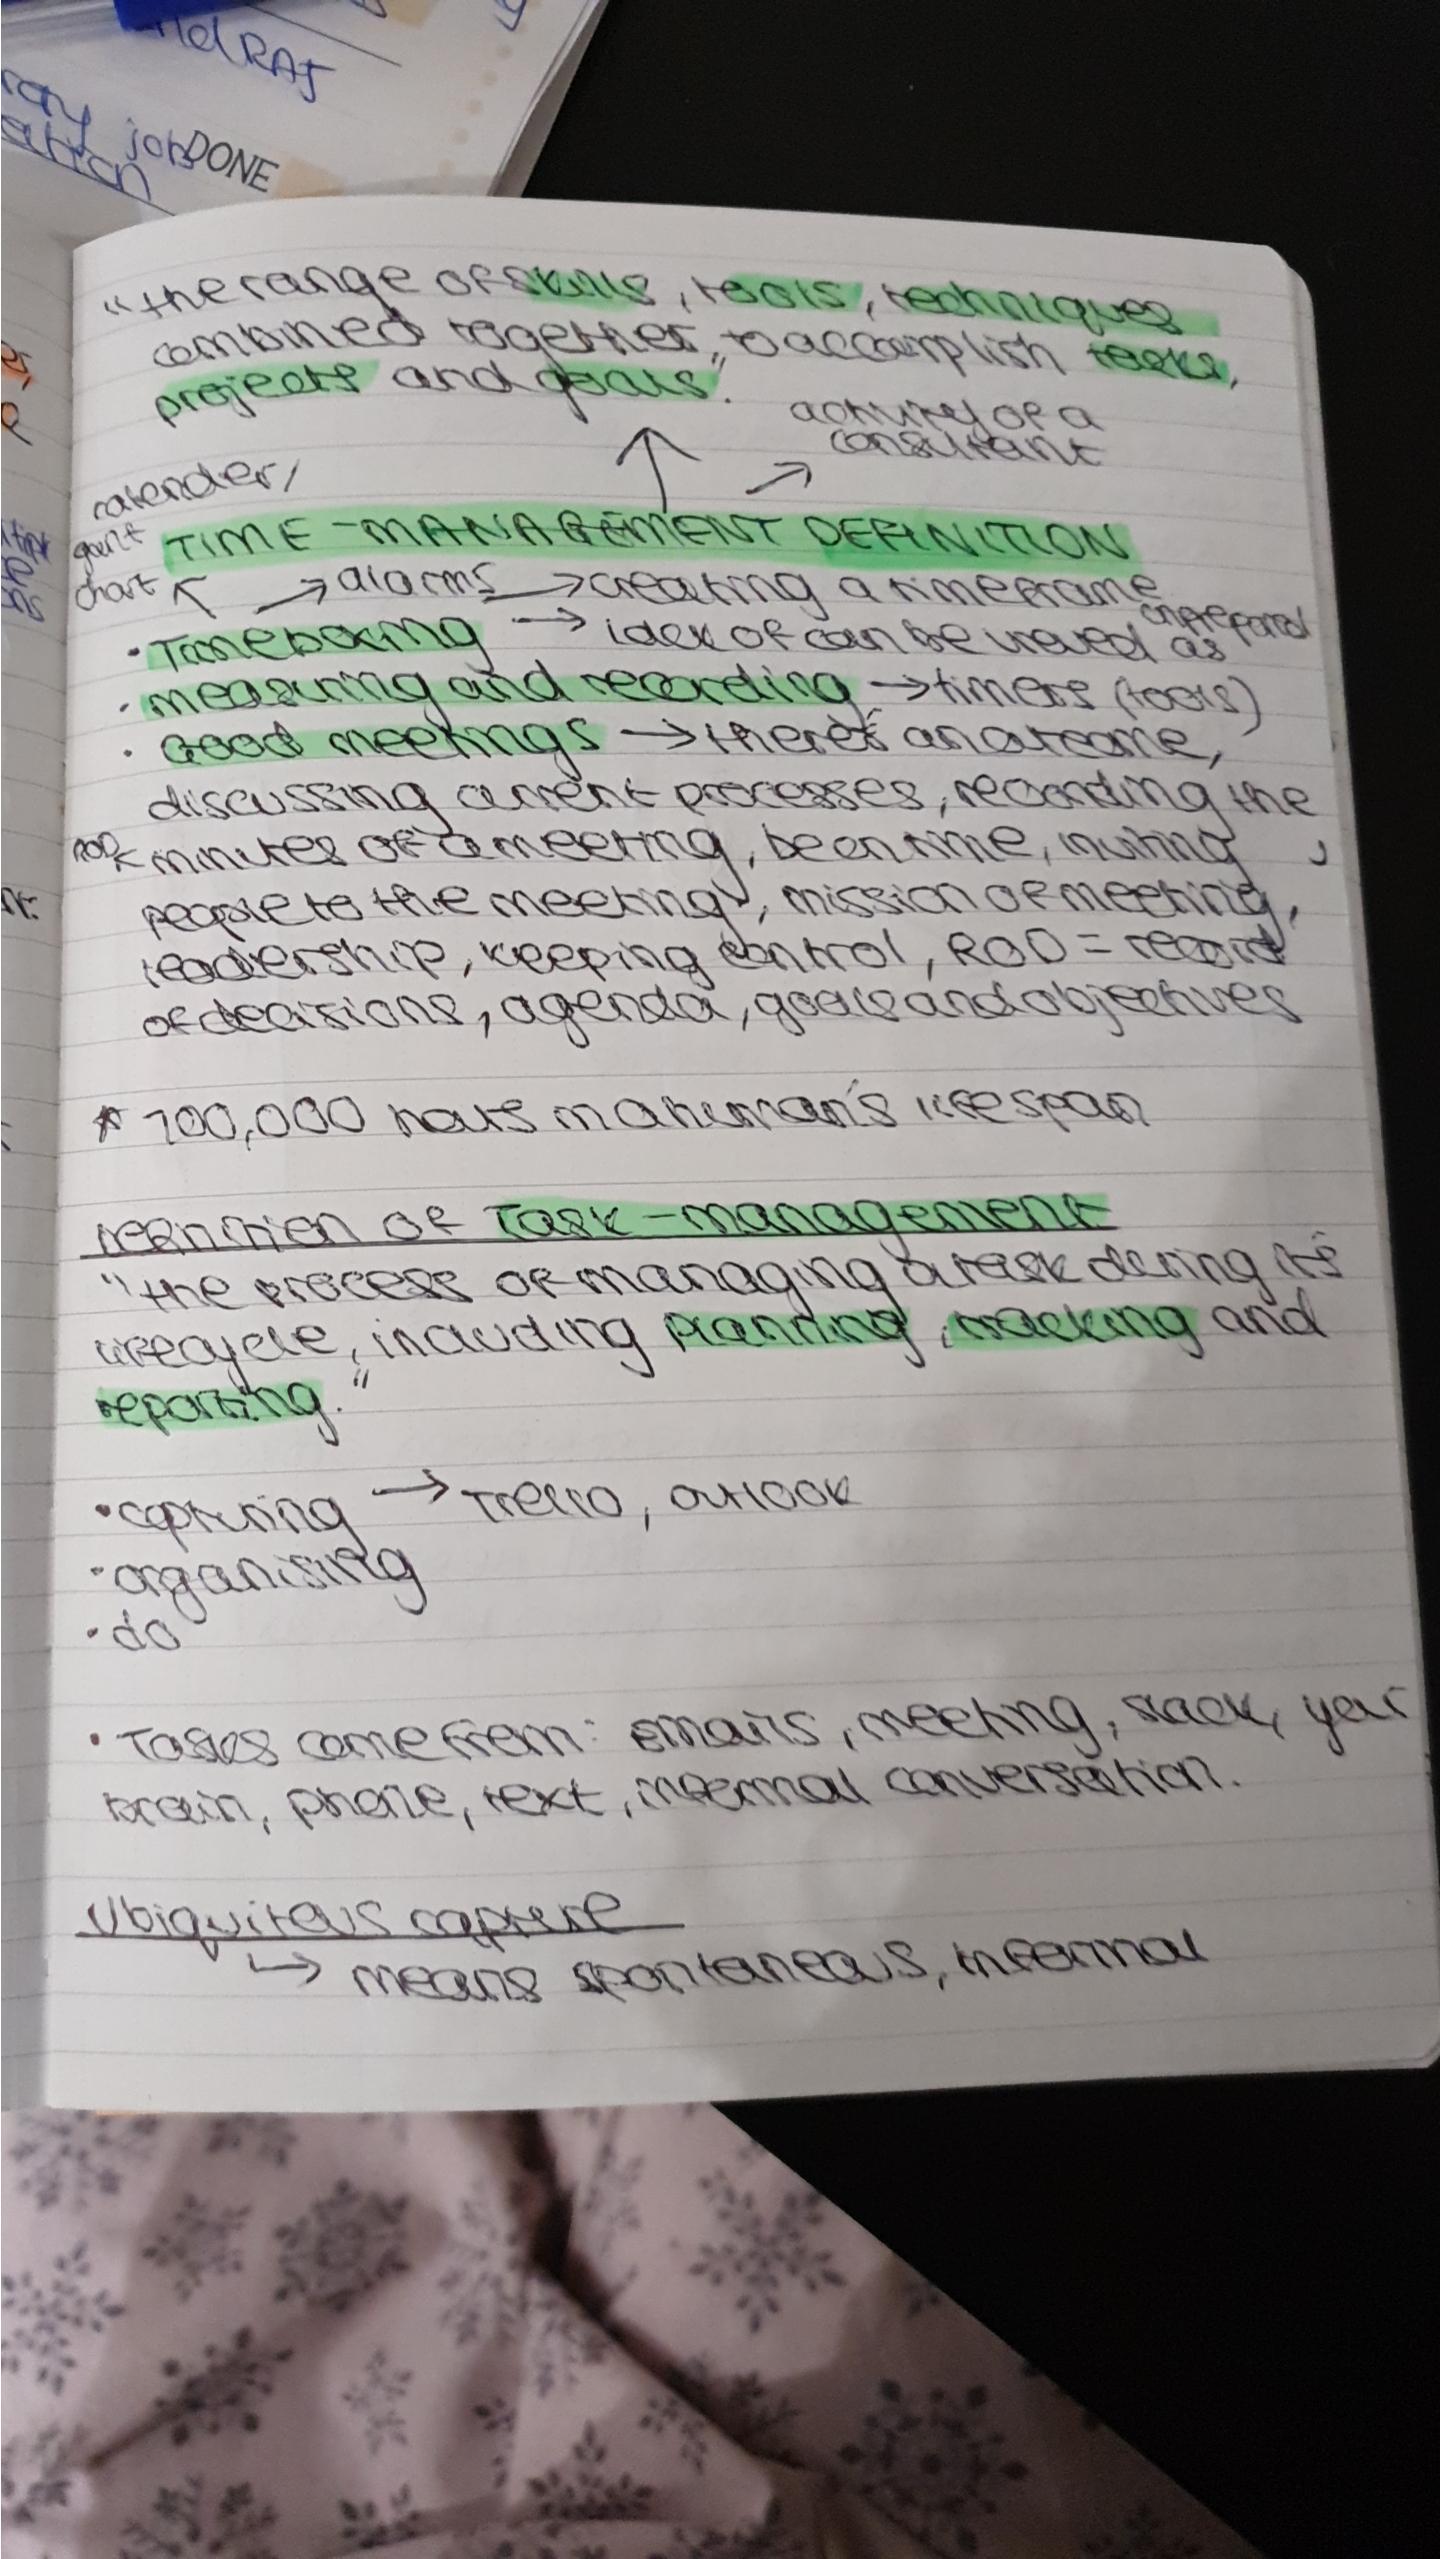 RAJ
job DONE
"the range of skills, tools, techniques
combined together," to accomplish tasks,
projects and goals".
activity of a
consultant
calender/
gant
chart
TIME-MANAGEMENT DEFINITION
→ alarms → creating a timeframe
• Timeboxing → lack of can be viewed as unprepared
• measuring and recording → timers (tools)
• Good meetings → there's an outcome,
discussing current processes, recording the
minutes of a meeting, be on time, inviting
people to the meeting, mission of meeting,
leadership, keeping control, ROD = record
of decisions, agenda, goals and objectives
* 700,000 hours in a human's lifespan
Definition of Task-management
"the process of managing a task during it's
lifecycle, including planning, tracking and
reporting."
• capturing → Trello, outlook
• organising
• do
• Tasks come from: emails, meeting, slack, your
brain, phone, text, informal conversation.
Ubiquitous capture
↳ means spontaneous, informal